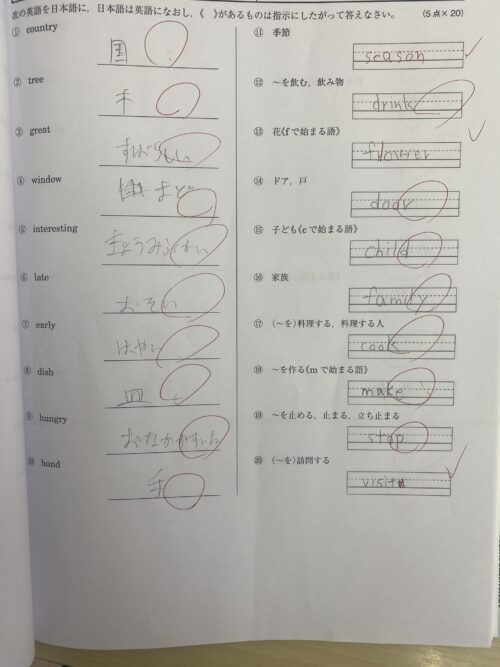 次の英語を日本語に,日本語は英語になおし,《 》があるものは指示にしたがって答えなさい。 (5点×20)
① country
国
② tree
木
③ great
すばらしい
④ window
まど
⑤ interesting
きょうみぶかい
⑥ late
おそい
⑦ early
はやい
⑧ dish
皿
⑨ hungry
おなかがすいた
⑩ hand
手
⑪ 季節
season
⑫ ~を飲む,飲み物
drink
⑬ 花《fで始まる語》
flower
⑭ ドア,戸
door
⑮ 子ども《cで始まる語》
child
⑯ 家族
family
⑰ (~を)料理する,料理する人
cook
⑱ ~を作る《mで始まる語》
make
⑲ ~を止める,止まる,立ち止まる
stop
⑳ (~を)訪問する
visit